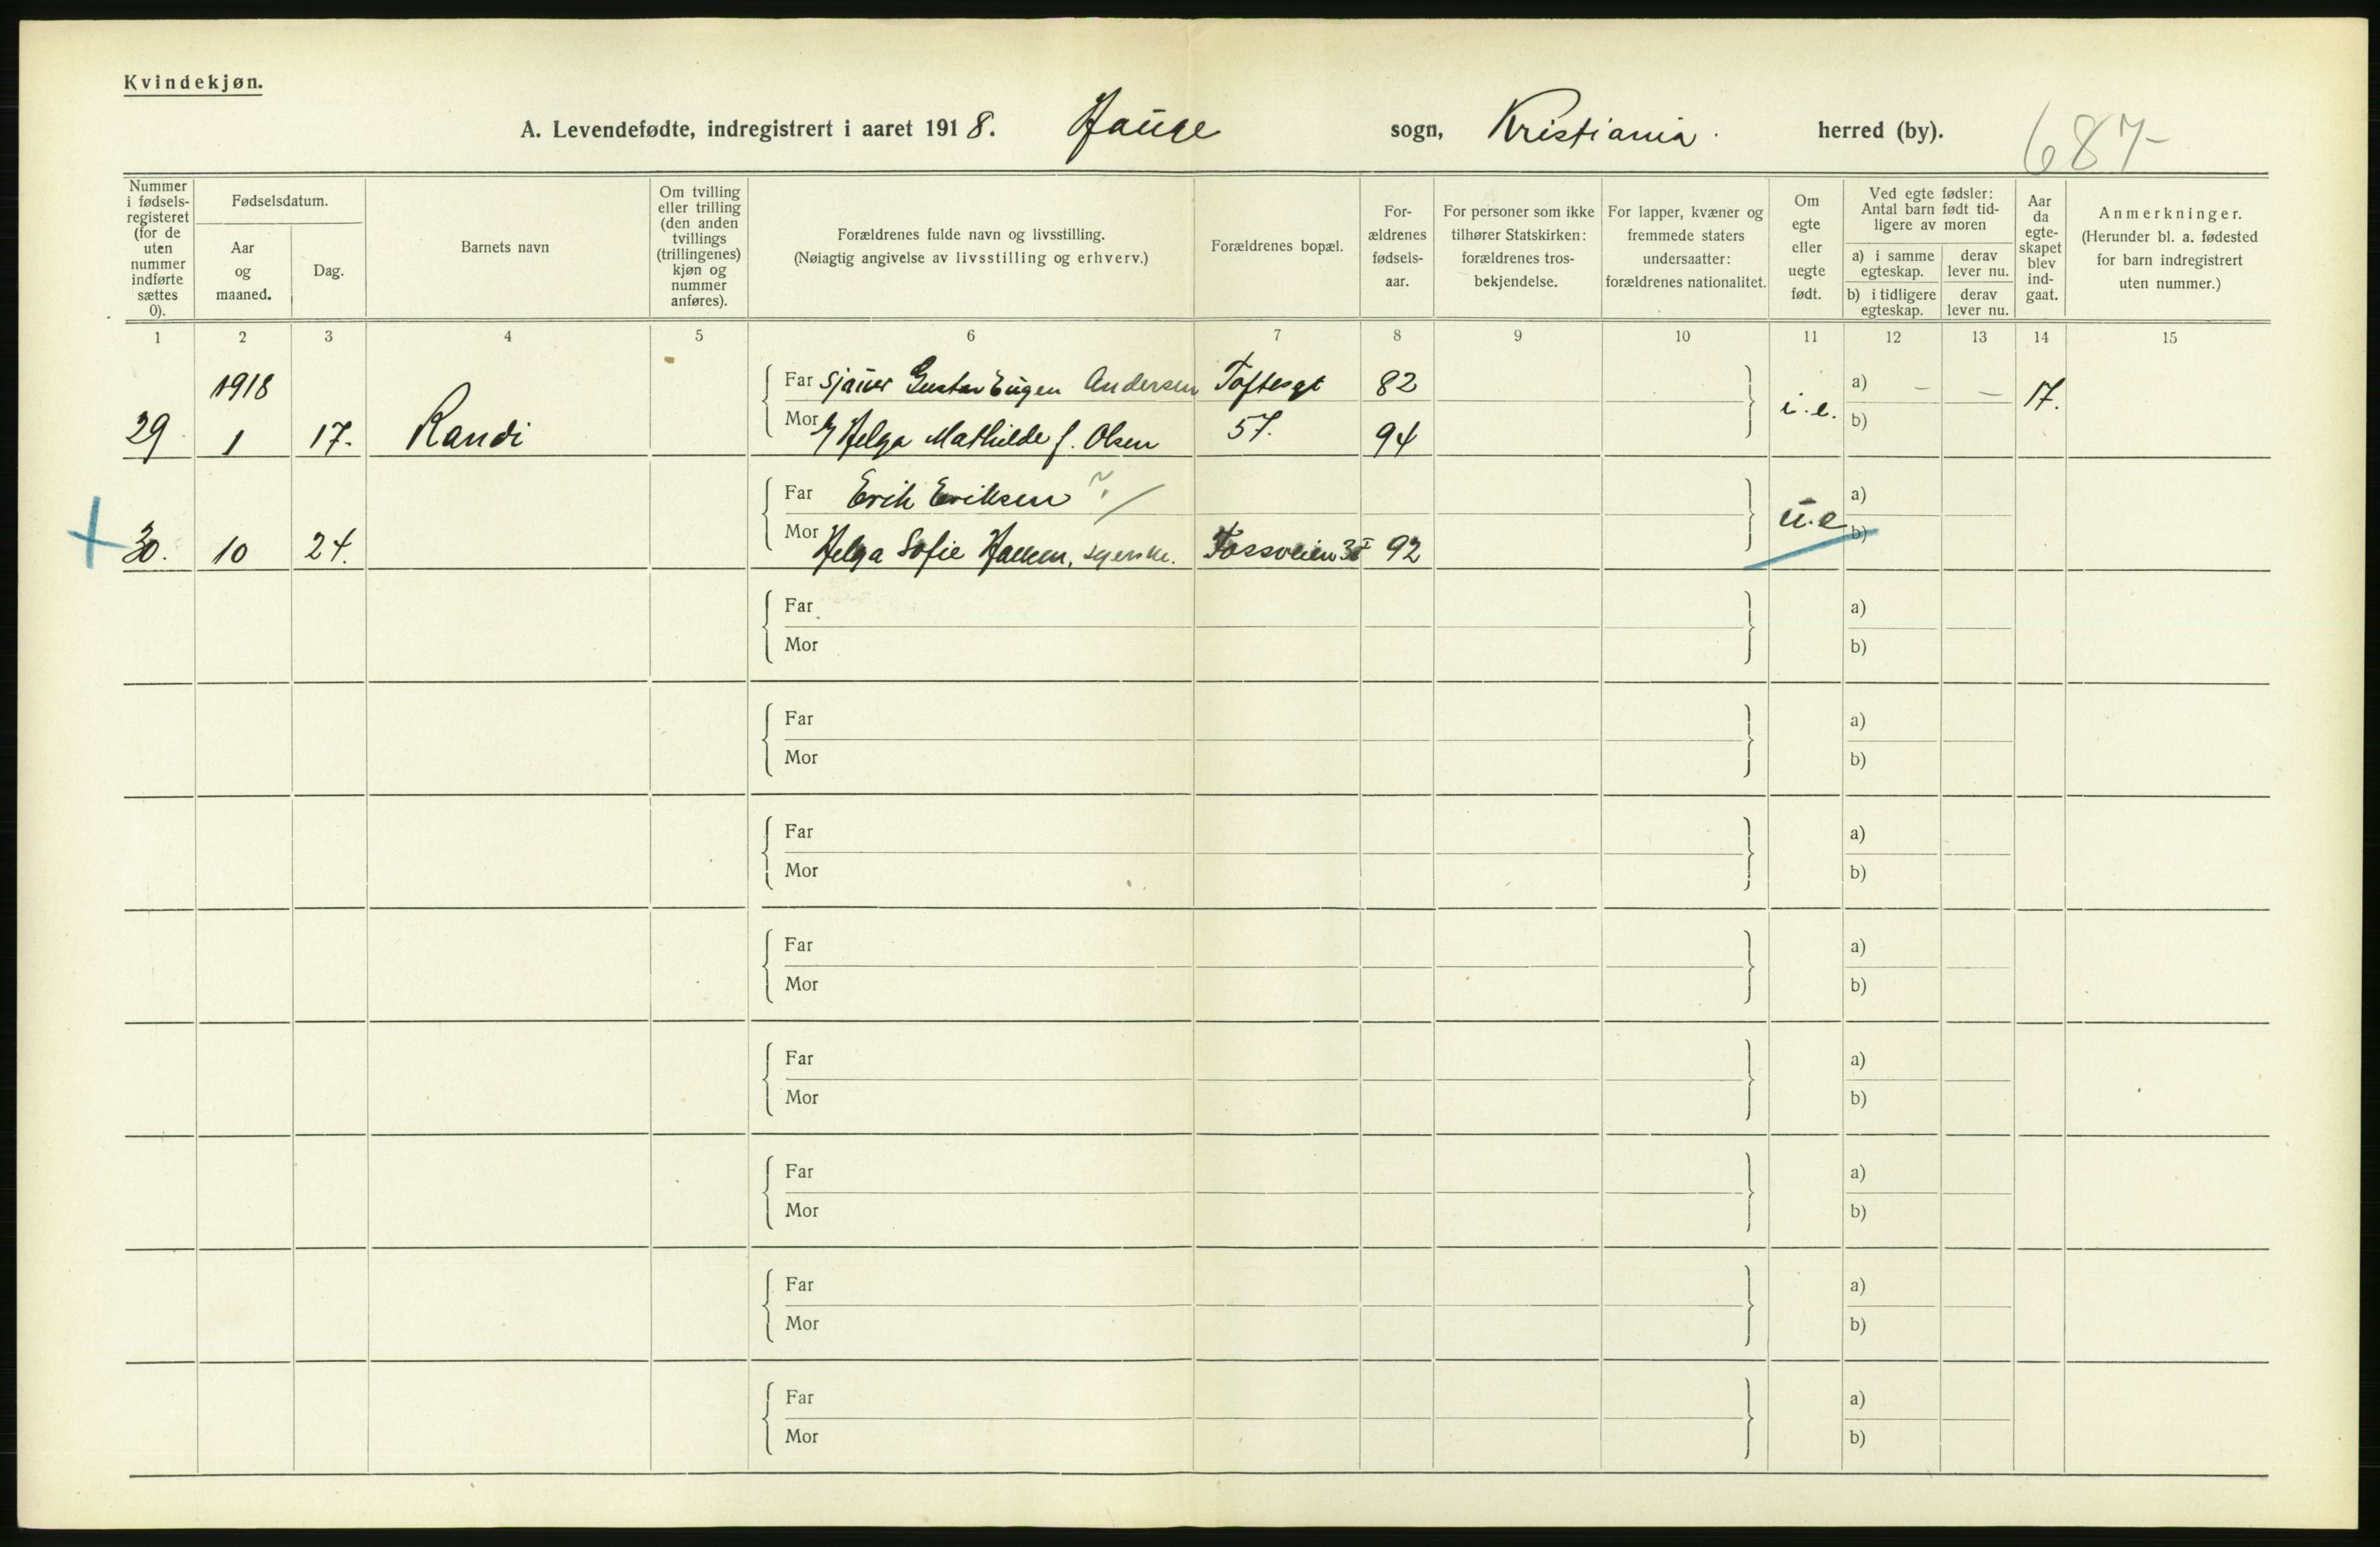 Kvindekjøn.
A. Levendefødte, indregistrert i aaret 1918. Hauge sogn, Kristiania. herred (by).
687-
Nummer i fødsels- registeret (for de uten nummer indførte sættes 0).
Fødselsdatum.
Aar og maaned.
Dag.
Barnets navn
Om tvilling eller trilling (den anden tvillings (trillingenes) kjøn og nummer anføres).
Forældrenes fulde navn og livsstilling.
(Nøiagtig angivelse av livsstilling og erhverv.)
Forældrenes bopæl.
For- ældrenes fødsels- aar.
For personer som ikke tilhører Statskirken: forældrenes tros- bekjendelse.
For lapper, kvæner og fremmede staters undersaatter: forældrenes nationalitet.
Om egte eller uegte født.
Ved egte fødsler: Antal barn født tid- ligere av moren
a) i samme egteskap.
derav lever nu.
b) i tidligere egteskap.
derav lever nu.
Aar da egte- skapet blev ind- gaat.
Anmerkninger.
(Herunder bl. a. fødested for barn indregistrert uten nummer.)
1 2 3 4 5 6 7 8 9 10 11 12 13 14 15
1918 Far Sjauer Gustav Eugen Andersen Toftesgt 82 a) – –
29 1 17. Randi Mor Helga Mathilde f. Olsen 57. 94 i.e. b) 17.
Far Erik Eriksen ? a)
30. 10 24. Mor Helga Sofie Hansen, syerske. Fossveien 92 u.e b)
Far a)
Mor b)
Far a)
Mor b)
Far a)
Mor b)
Far a)
Mor b)
Far a)
Mor b)
Far a)
Mor b)
Far a)
Mor b)
Far a)
Mor b)